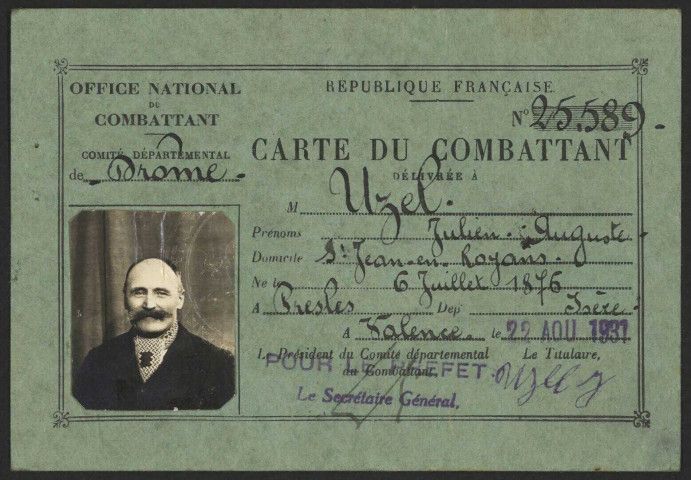 OFFICE NATIONAL
DU
COMBATTANT
COMITÉ DÉPARTEMENTAL
de Drôme
RÉPUBLIQUE FRANÇAISE
N° 25.589
CARTE DU COMBATTANT
DÉLIVRÉE À
M Uzel.
Prénoms Julien - Auguste
Domicile St Jean-en-Royans.
Né le 6 Juillet 1876
A Presles Dep' Isère
A Valence. le 22 AOU 1931
Le Président du Comité départemental
du Combattant,
Le Titulaire,
POUR LE PRÉFET.
Le Secrétaire Général,
Uzel J